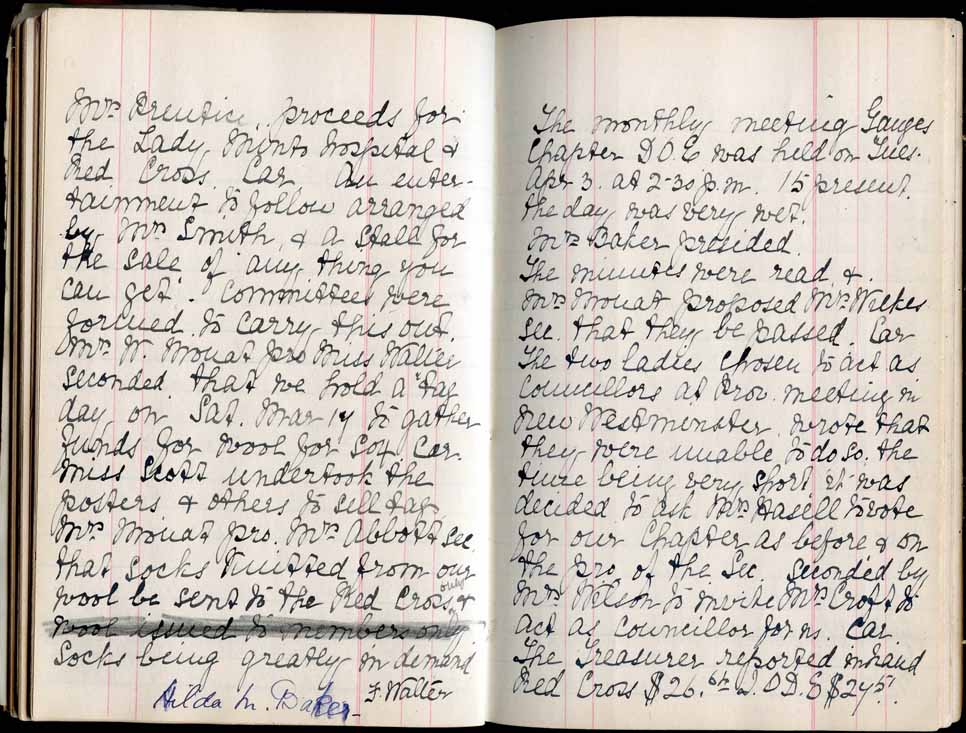 Mrs Prentice. proceeds for
the Lady Minto Hospital &
Red Cross. Car. An enter-
tainment to follow arranged
by Mrs Smith, & a stall for
the sale of "any thing you
can get". Committees were
formed to carry this out.
Mrs W. Mouat pro Miss Walter
seconded that we hold a tag
day on Sat. Mar 17 to gather
funds for wool for Sox Car.
Miss Scott undertook the
posters & others to sell tags
Mrs Mouat pro. Mrs Abbott sec.
that socks knitted from our
wool be sent to the Red Cross, only &
wool issued to members only
Socks being greatly in demand
F. Walter
Hilda M. Baker-
The monthly meeting Ganges
Chapter I.O.E was held on Tues.
Apr 3. at 2-30 p.m. 15 present.
the day was very wet.
Mrs Baker presided.
The minutes were read &.
Mrs Mouat proposed Mrs Wilkes
sec. that they be passed. Car
The two ladies chosen to act as
Councillors at Prov. meeting in
New Westminster, wrote that
they were unable to do so. the
time being very short it was
decided to ask Mrs Hasell to vote
for our Chapter as before & on
the pro of the Sec. seconded by
Mrs Wilson to invite Mrs Croft to
act as Councillor for us. Car.
The Treasurer reported in hand
Red Cross $26. I.O.D.E $245.